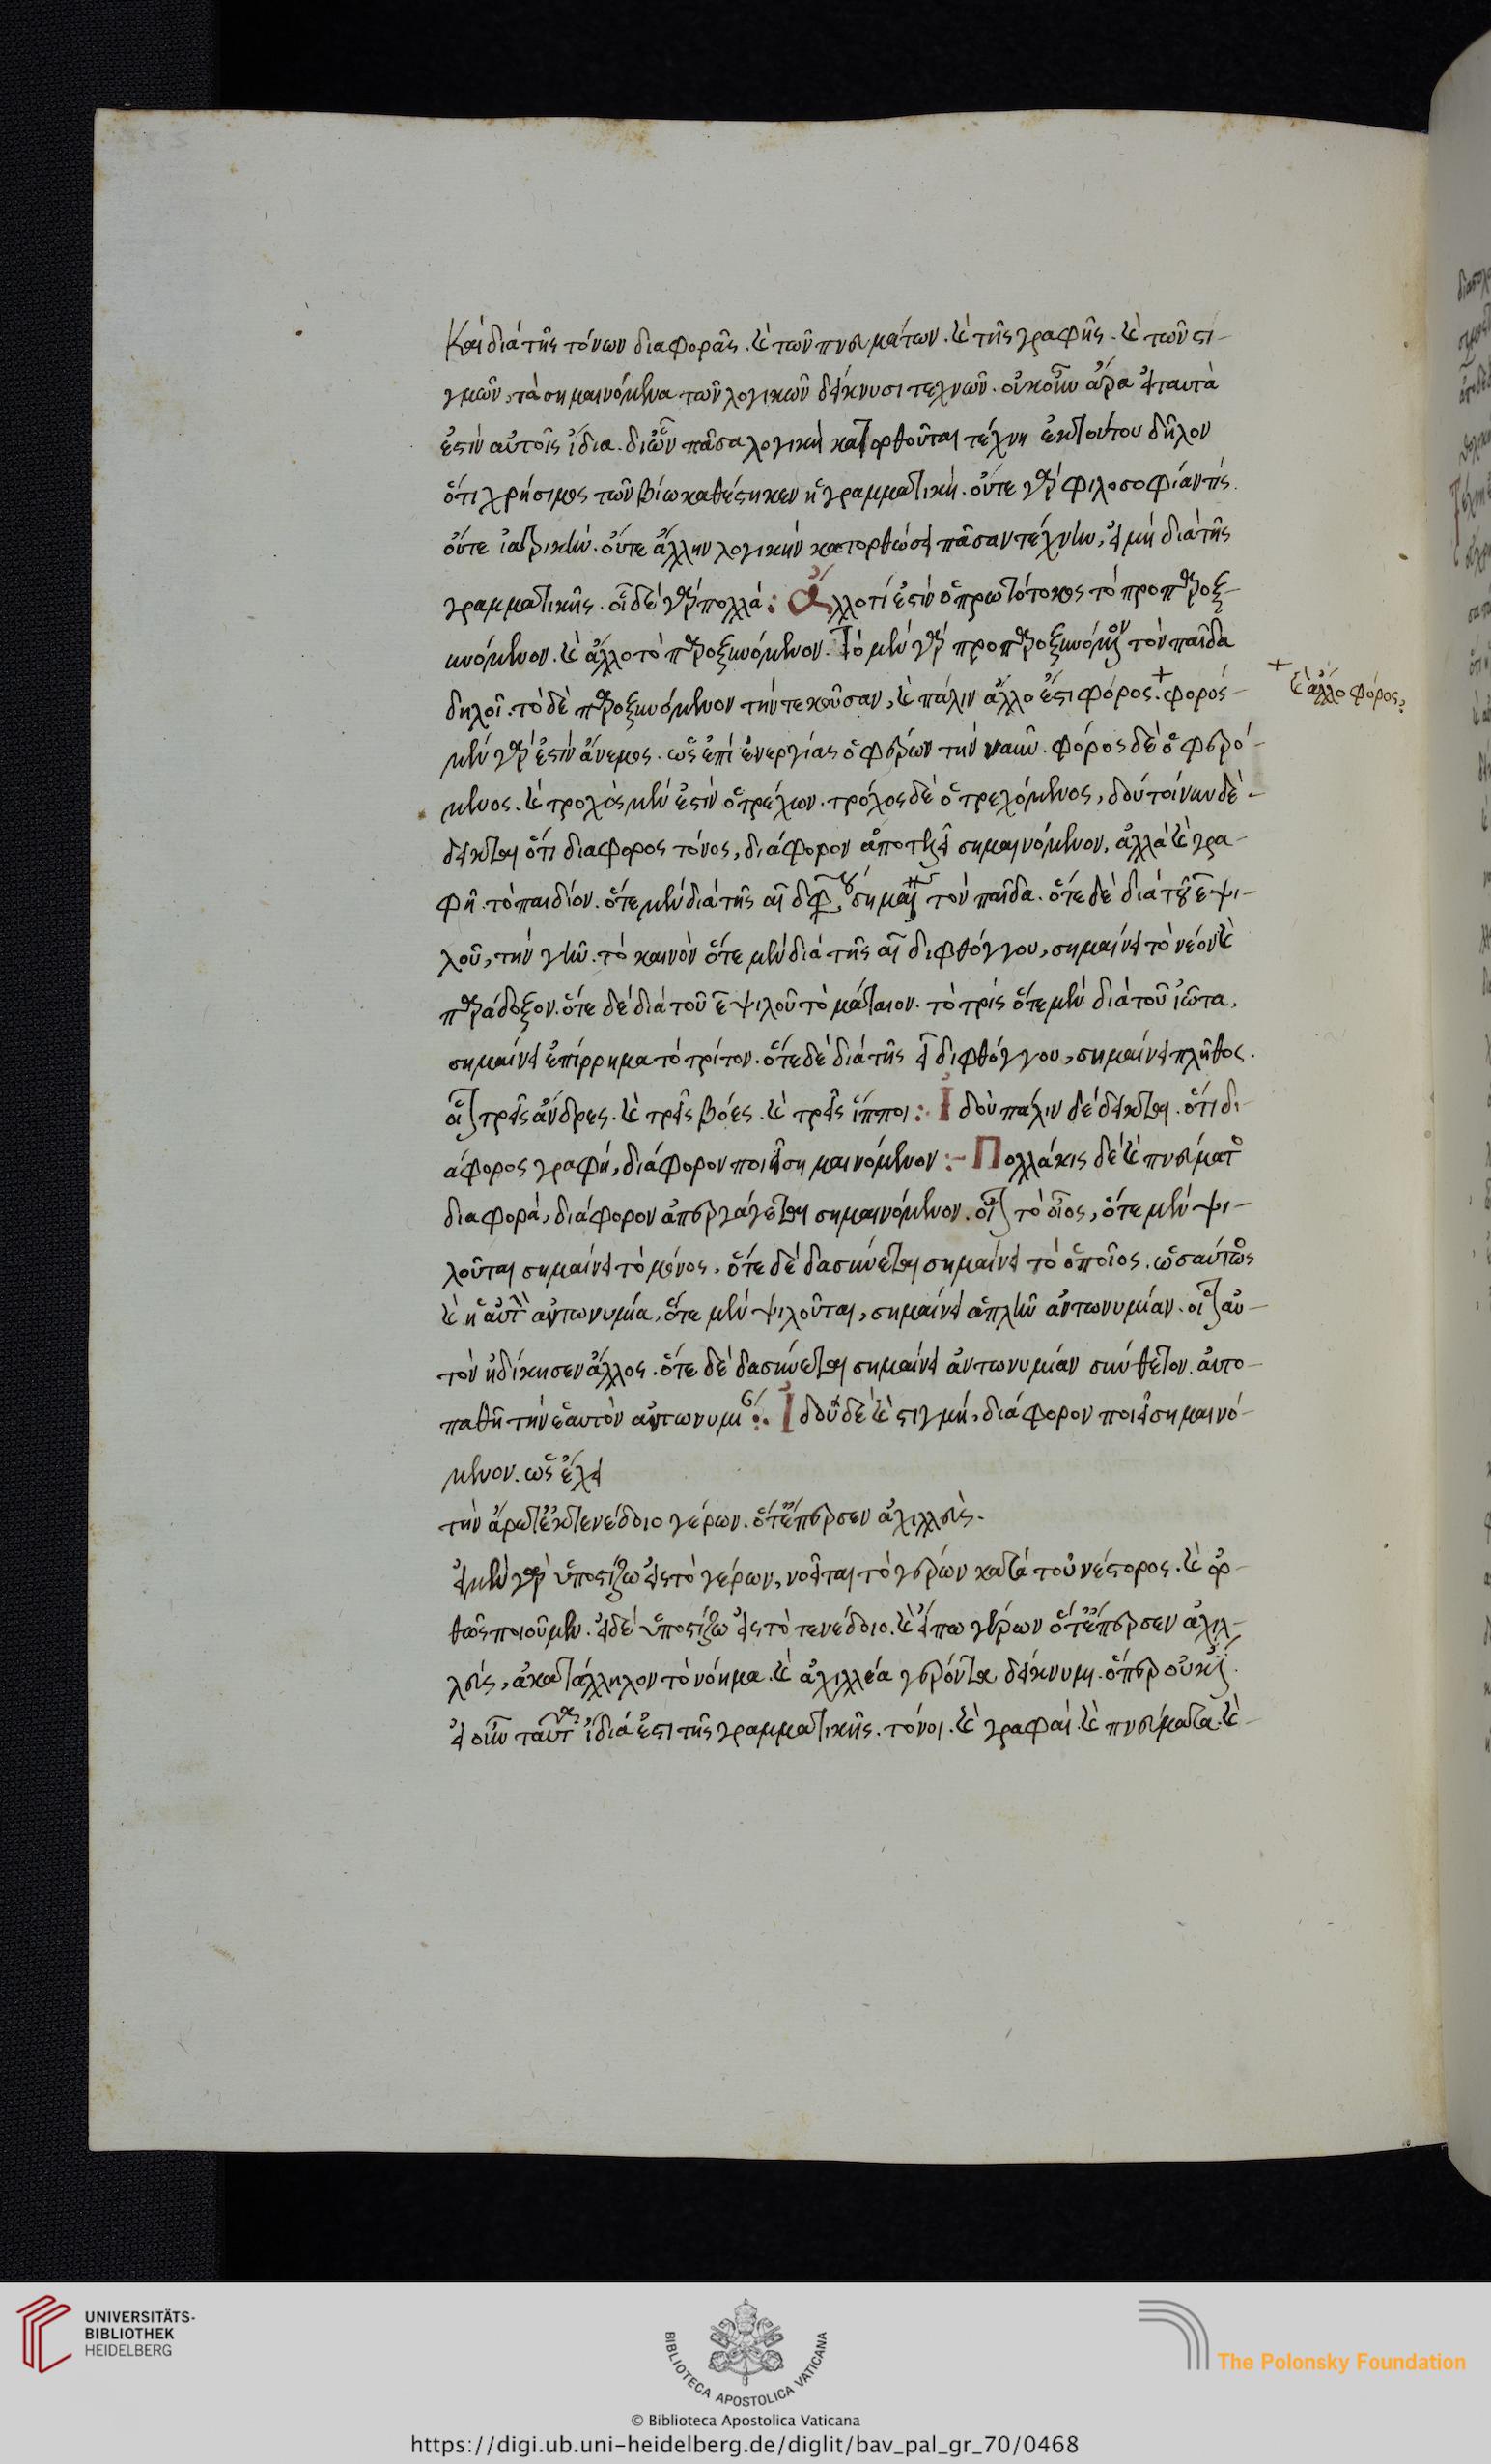 Καὶ διὰ τῆς τόνων διαφορᾶς. καὶ τῶν πνευμάτων. καὶ τῆς γραφῆς. καὶ τῶν στι-
γμῶν, τὰ σημαινόμενα τῶν λογικῶν δείκνυσι τεχνῶν. οὐκοῦν ἄρα εἰ ταυτὰ
ἐστὶν αὐτοῖς ἴδια. δι ὧν πᾶσα λογικὴ κατορθοῦται τέχνη ἐκ τούτου δῆλον
ὅτι χρήσιμος τῶν βίω καθέστηκεν ἡ γραμματική. οὔτε γὰρ φιλοσοφίαν τίς.
οὔτε ἰατρικήν. οὔτε ἄλλην λογικὴν κατορθώσει πᾶσαν τέχνην, εἰ μὴ διὰ τῆς
γραμματικῆς. οἶδε γὰρ πολλά: Ἄλλο τί ἐστὶν ὁ πρωτότοκος τὸ προπαροξ-
υνόμενον. καὶ ἄλλο τὸ παροξυνόμενον. Τὸ μὲν γὰρ προπαροξυνόμενον τὸν παῖδα
δηλοῖ. τὸ δὲ παροξυνόμενον τὴν τεκοῦσαν, καὶ πάλιν ἄλλο ἐστι φόρος.+ φορός
+ καὶ ἄλλο φόρος,
μὲν γὰρ ἐστὶν ἄνεμος. ὡς ἐπὶ ἐνεργίας ὁ φέρων τὴν ναῦν. φόρος δὲ ὁ φερό-
μενος. καὶ τροχὸς μὲν ἐστὶν ὁ τρέχων. τρόχος δὲ ὁ τρεχόμενος, ἰδοὺ τοίνυν δέ-
δεικται ὅτι διάφορος τόνος, διάφορον ἀποτελεῖ σημαινόμενον, ἀλλὰ καὶ γρα-
φῆ. τὸ παιδίον. ὅτε μὲν διὰ τῆς αι διφθόγγου σημαίνει τὸν παῖδα. ὅτε δὲ διὰ τοῦ ε ψι-
λοῦ, τὴν γῆν. τὸ καινὸν ὅτε μὲν διὰ τῆς αι διφθόγγου, σημαίνει τὸ νέον καὶ
παράδοξον. ὅτε δὲ διὰ τοῦ ε ψιλοῦ τὸ μάταιον. τὸ τρὶς ὅτε μὲν διὰ τοῦ ἰῶτα,
σημαίνει ἐπίρρημα τὸ τρίτον. ὅτε δὲ διὰ τῆς ει διφθόγγου, σημαίνει πλῆθος.
οἷον τρεῖς ἄνδρες. καὶ τρεῖς βόες. καὶ τρεῖς ἵπποι:- Ἰδοὺ πάλιν δέδεικται. ὅτι δι-
άφορος γραφή, διάφορον ποιεῖ σημαινόμενον:- Πολλάκις δὲ καὶ πνεύματος
διαφορά, διάφορον ἀπεργάζεται σημαινόμενον. οἷον τὸ οἶος, ὅτε μὲν ψι-
λοῦται σημαίνει τὸ μόνος. ὅτε δὲ δασύνεται σημαίνει τὸ ὁποῖος. ὡσαύτως
καὶ ἡ αὐτὸν ἀντωνυμία, ὅτε μὲν ψιλοῦται, σημαίνει ἁπλῆν ἀντωνυμίαν. οἷον αὐ-
τὸν ἠδίκησεν ἄλλος. ὅτε δὲ δασύνεται σημαίνει ἀντωνυμίαν σύνθετον. αὐτο-
παθῆ τὴν ἑαυτὸν ἀντωνυμίαν:. Ἰδοὺ δὲ καὶ στιγμή, διάφορον ποιεῖ σημαινό-
μενον. ὡς ἔχει
τὴν ἄρετ ἐκ τενέδοιο γέρων. ὅτ ἔπερσεν ἀχιλλεύς.
εἰ μὲν γὰρ ὑποστίζω εἰς τὸ γέρων, νοεῖται τὸ γέρων κατὰ τοῦ νέστορος. καὶ ὀρ-
θῶς ποιοῦμεν. εἰ δὲ ὑποστίζω εἰς τὸ τενέδοιο. καὶ εἴπω γέρων ὅτ ἔπερσεν ἀχιλ-
λεύς, ἀκατάλληλον τὸ νόημα. καὶ ἀχιλλέα γέροντα δείκνυμι. ὅπερ οὐκ ἔστι.
εἰ οὖν ταῦτα ἴδιά ἐστι τῆς γραμματικῆς. τόνοι. καὶ γραφαὶ. καὶ πνεύματα. καὶ
UNIVERSITÄTS-
BIBLIOTHEK
HEIDELBERG
BIBLIOTECA APOSTOLICA VATICANA
The Polonsky Foundation
© Biblioteca Apostolica Vaticana
https://digi.ub.uni-heidelberg.de/diglit/bav_pal_gr_70/0468